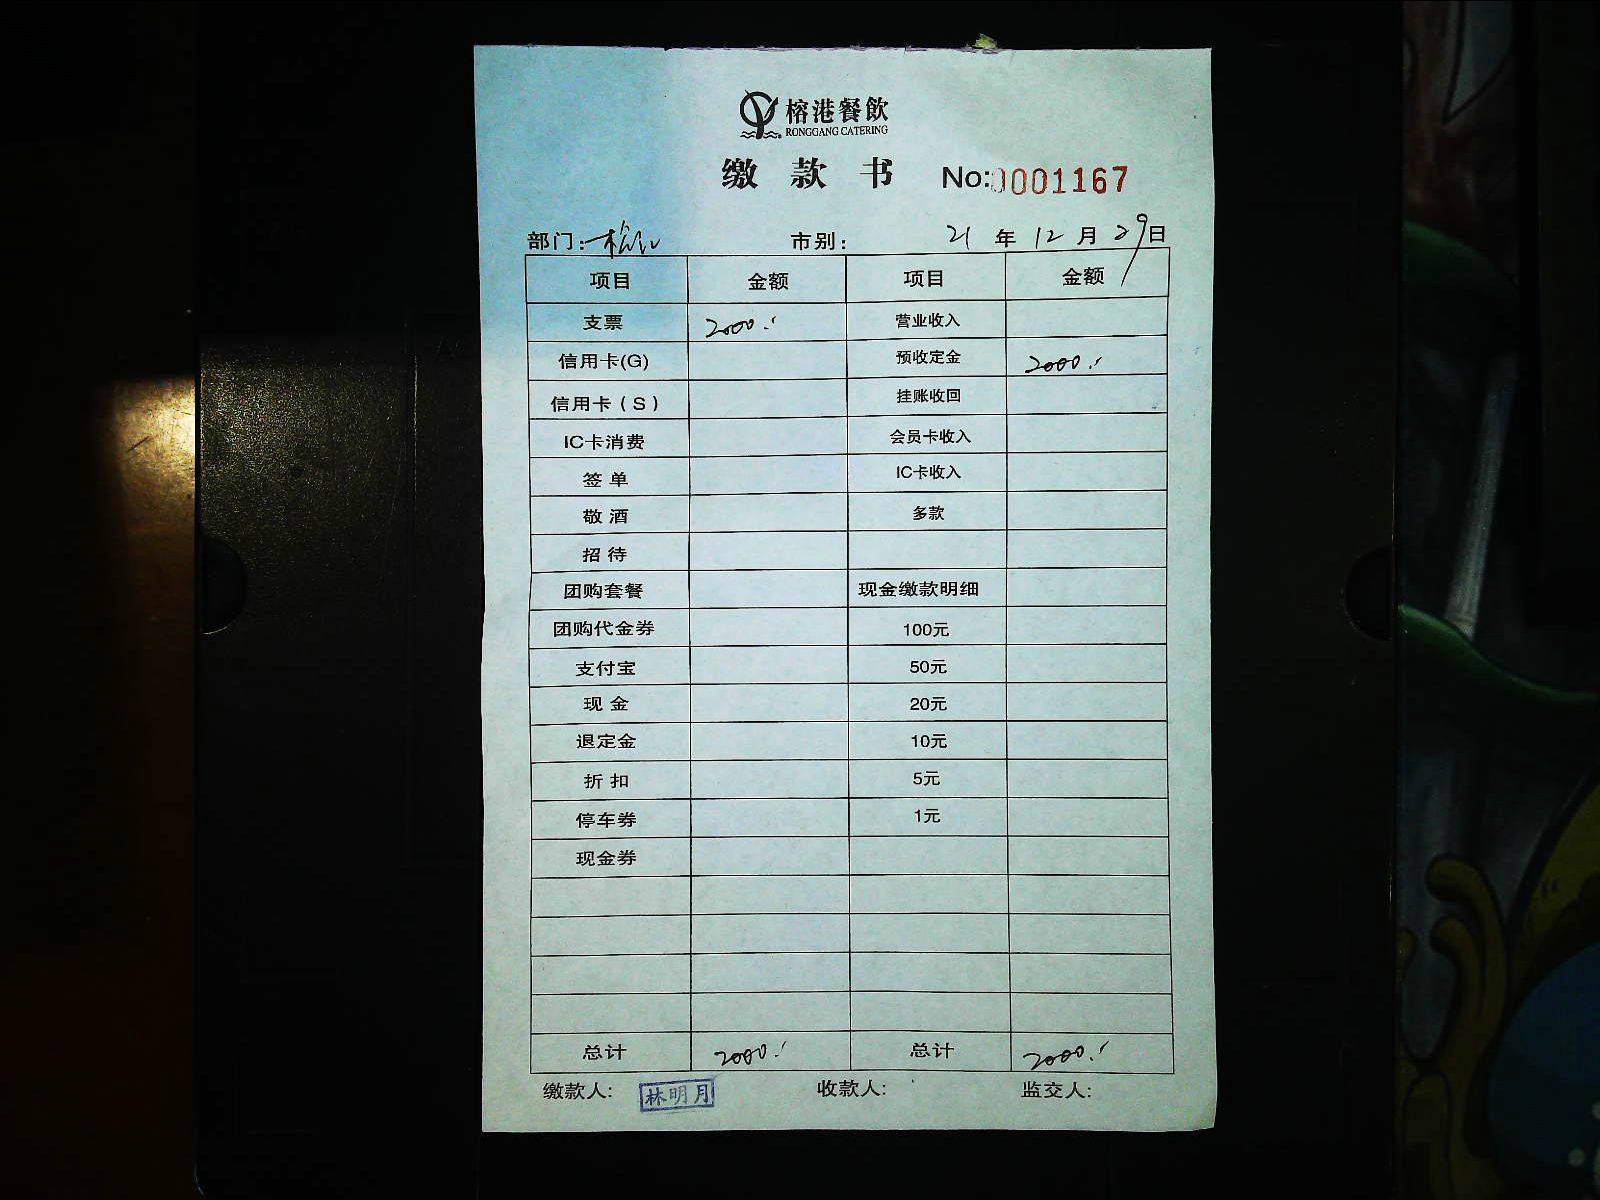 榕港餐飲
RONGGANG CATERING
缴款书 No:0001167
部门: 市别: 21年12月29日
项目 金额 项目 金额
支票 2000.- 营业收入
信用卡(G) 预收定金 2000.-
信用卡(S) 挂账收回
IC卡消费 会员卡收入
签单 IC卡收入
敬酒 多款
招待
团购套餐 现金缴款明细
团购代金券 100元
支付宝 50元
现金 20元
退定金 10元
折扣 5元
停车券 1元
现金券
总计 2000.- 总计 2000.-
缴款人: 林明月 收款人: 监交人: